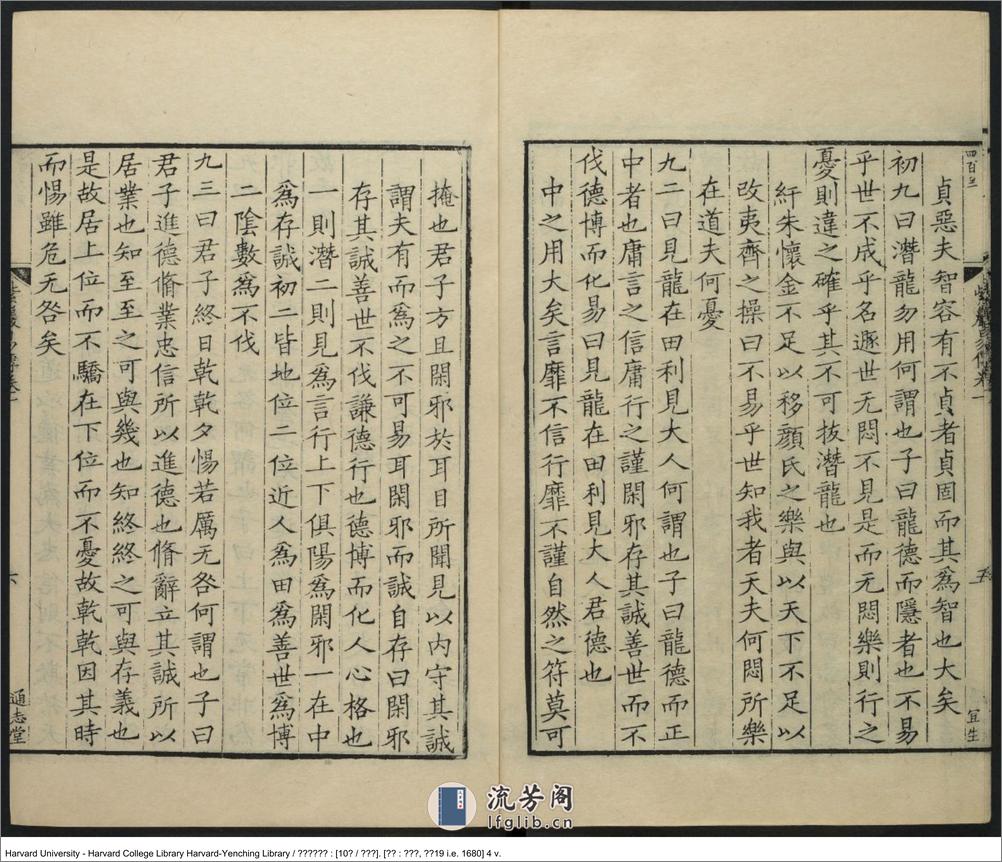 貞惡夫智容有不貞者貞固而其爲智也大矣
初九曰潛龍勿用何謂也子曰龍德而隱者也不易
乎世不成乎名遯世无悶不見是而无悶樂則行之
憂則違之確乎其不可拔潛龍也
紆朱懷金不足以移顏氏之樂與以天下不足以
改夷齊之操曰不易乎世知我者天夫何悶所樂
在道夫何憂
九二曰見龍在田利見大人何謂也子曰龍德而正
中者也庸言之信庸行之謹閑邪存其誠善世而不
伐德博而化易曰見龍在田利見大人君德也
中之用大矣言靡不信行靡不謹自然之符莫可
宜生
五
掩也君子方且閑邪於耳目所聞見以内守其誠
謂夫有而爲之不可易耳閑邪而誠自存曰閑邪
存其誠善世不伐謙德行也德博而化人心格也
一則潛二則見爲言行上下俱陽爲閑邪一在中
爲存誠初二皆地位二位近人爲田爲善世爲博
二陰數爲不伐
九三曰君子終日乾乾夕惕若厲无咎何謂也子曰
君子進德脩業忠信所以進德也脩辭立其誠所以
居業也知至至之可與幾也知終終之可與存義也
是故居上位而不驕在下位而不憂故乾乾因其時
而惕雖危无咎矣
六
通志堂
流芳阁
lfglib.cn
Harvard University - Harvard College Library Harvard-Yenching Library / ?????? : [10? / ???]. [?? : ???, ??19 i.e. 1680] 4 v.